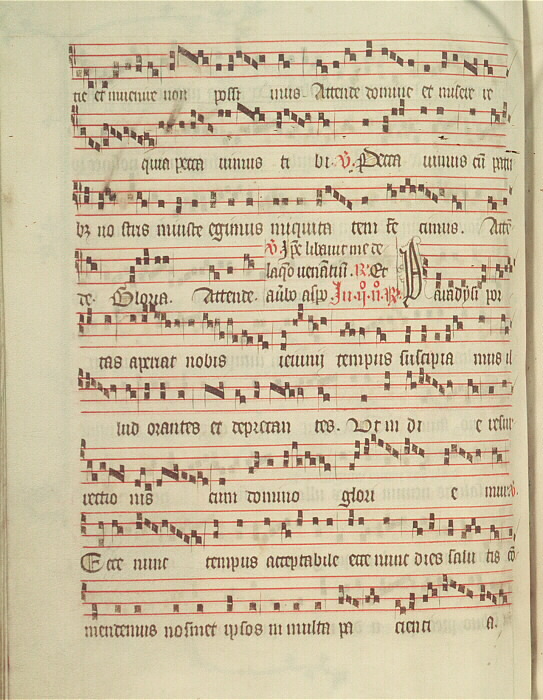 tie et inuenire non possi mus Attende domine et misere re
quia pecca uimus ti bi. V. Pecca uimus cū patri
bꝫ no stris iniuste egimus iniquita tem fe cimus. Atte
V Ipse liberauit me de
laqo uenātiū. R Et
de. Gloria. Attende. a ūbo aspo In .ij. ń. R. Paradysi por
tas aperiat nobis ieiunij tempus suscipia mus il
lud orantes et deprecan tes. Vt in di e resur
rectio nis cum domino glori e mur. V.
Ecce nunc tempus acceptabile ecce nunc dies salu tis cō
mendemus nosmet ipsos in multa pa cienti a.